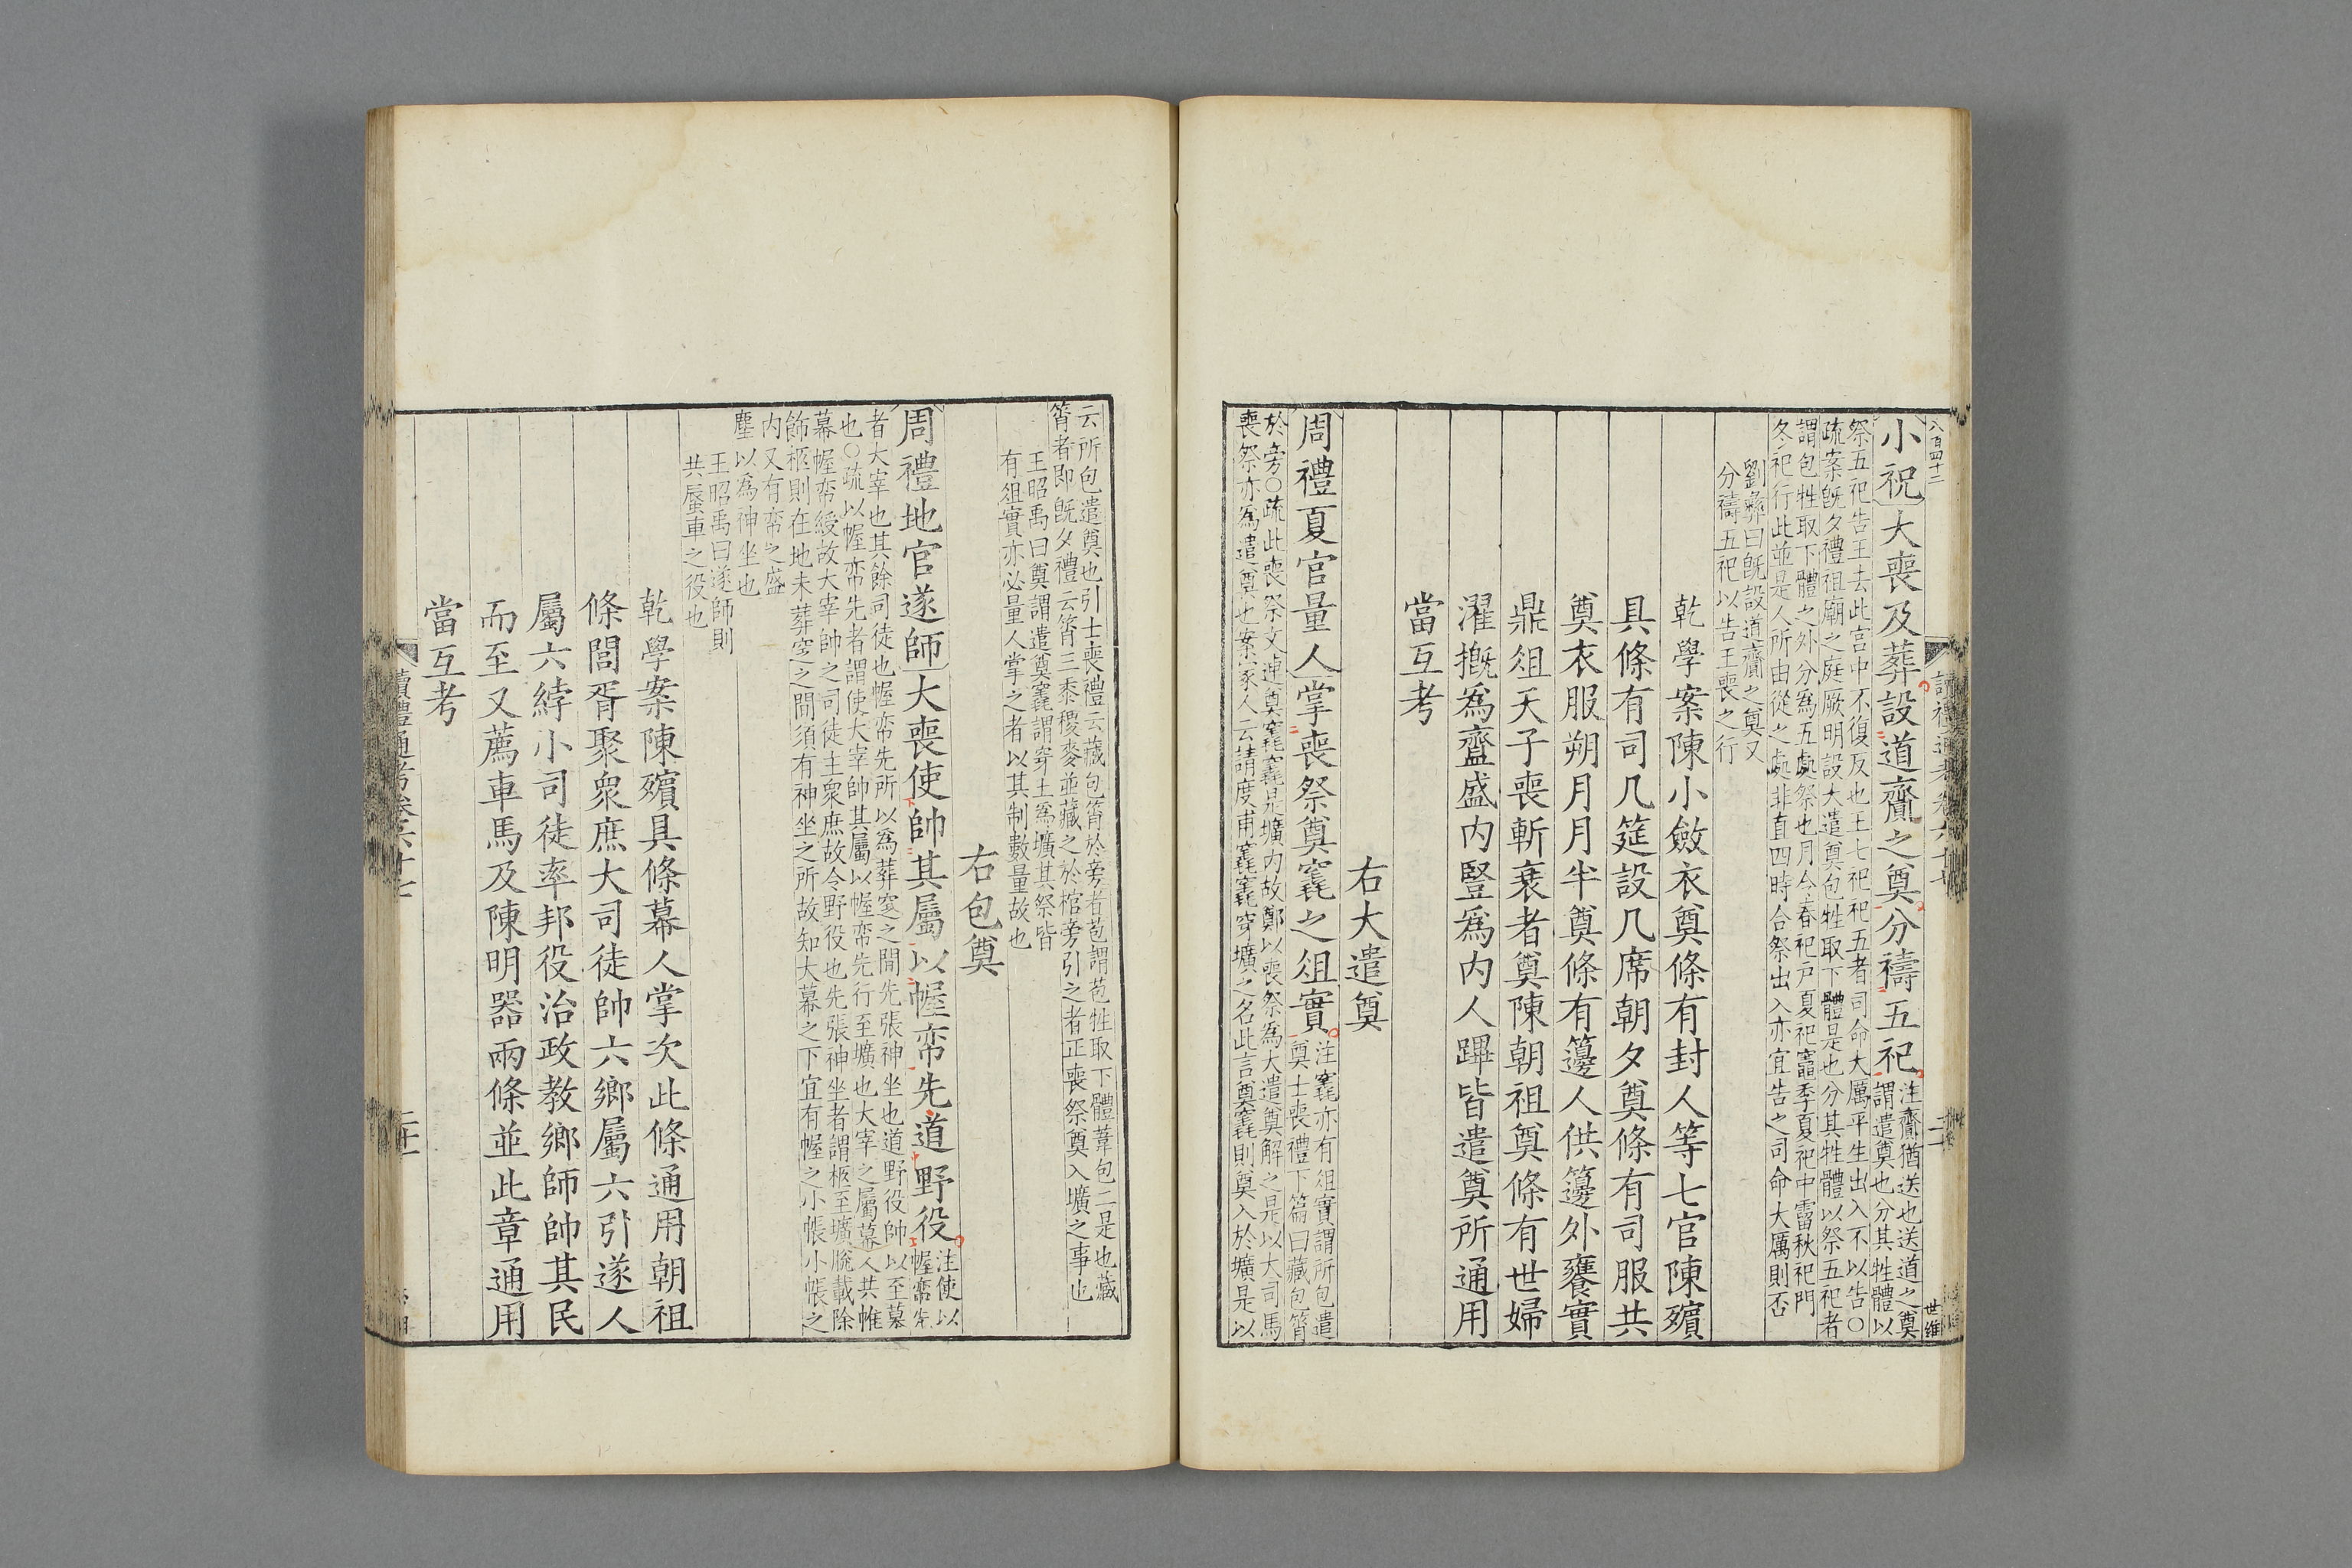 八百四十二
小祝大喪及葬設道齎之奠分禱五祀注齎猶送也送道之奠
謂遣奠也分其牲體以
祭五祀告王去此宫中不復反也王七祀祀五者司命大厲平生出入不以告〇
疏案旣夕禮祖廟之庭厥明設大遣奠包牲取下體是也分其牲體以祭五祀者
謂包牲取下體之外分爲五處祭也月令春祀戸夏祀竈季夏祀中霤秋祀門
冬祀行此並是人所由從之處非直四時合祭出入亦宜告之司命大厲則否
劉彝曰旣設道齎之奠又
分禱五祀以告王喪之行
乾學案陳小斂衣奠條有封人等七官陳殯
具條有司几筵設几席朝夕奠條有司服共
奠衣服朔月月半奠條有籩人供籩外饔實
鼎俎天子喪斬衰者奠陳朝祖奠條有世婦
濯摡爲齍盛内豎爲内人蹕皆遣奠所通用
當互考
右大遣奠
周禮夏官量人掌喪祭奠竁之俎實注竁亦有俎實謂所包遣
奠士喪禮下篇曰藏包筲
於旁〇疏此喪祭文連奠竁竁是壙内故鄭以喪祭爲大遣奠解之是以大司馬
喪祭亦爲遣奠也案冢人云請度甫竁竁穿壙之名此言奠竁則奠入於壙是以
云所包遣奠也引士喪禮云藏包筲於旁者苞謂苞牲取下體葦包二是也藏
筲者即旣夕禮云筲三黍稷麥並藏之於棺旁引之者正喪祭奠入壙之事也
王昭禹曰奠謂遣奠竁謂穿土爲壙其祭皆
有俎實亦必量人掌之者以其制數量故也
右包奠
周禮地官遂師大喪使帥其屬以幄帟先道野役注使以
幄帟先
者大宰也其餘司徒也幄帟先所以爲葬窆之間先張神坐也道野役帥以至墓
也〇疏以幄帟先者謂使大宰帥其屬以幄帟先行至壙也大宰之屬幕人共帷
幕幄帟綬故大宰帥之司徒主衆庶故令野役也先張神坐者謂柩至壙脫載除
飾柩則在地未葬窆之間須有神坐之所故知大幕之下宜有幄之小帳小帳之
内又有帟之盛
塵以爲神坐也
王昭禹曰遂師則
共蜃車之役也
乾學案陳殯具條幕人掌次此條通用朝祖
條閭胥聚衆庶大司徒帥六鄉屬六引遂人
屬六綍小司徒率邦役治政教鄉師帥其民
而至又薦車馬及陳明器兩條並此章通用
當互考
讀禮通考卷六十七